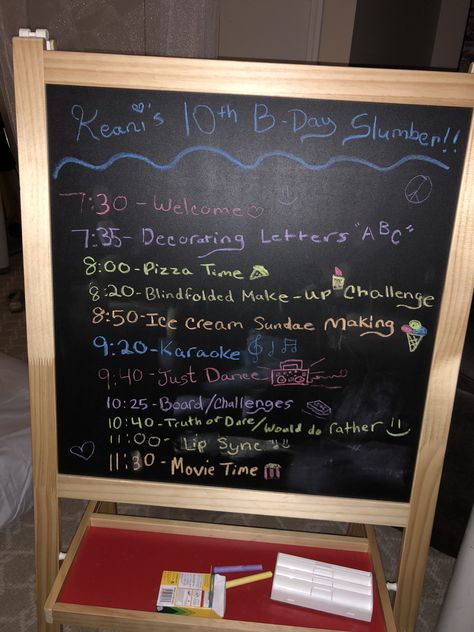 Keani's 10th B-Day Slumber!!
7:30 - Welcome
7:35 - Decorating Letters "ABC"
8:00 - Pizza Time
8:20 - Blindfolded Make-up Challenge
8:50 - Ice Cream Sundae Making
9:20 - Karaoke
9:40 - Just Dance
10:25 - Board/Challenges
10:40 - Truth or Dare/Would do rather
11:00 - Lip Sync
11:30 - Movie Time